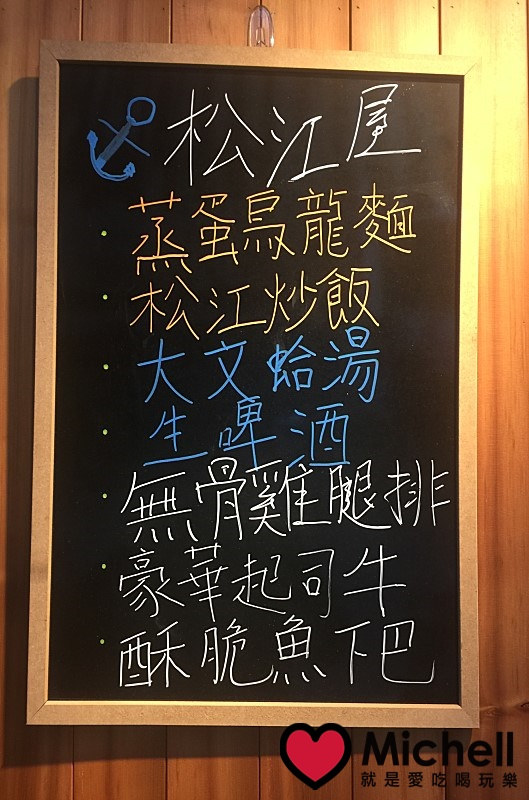 松江屋
蒸蛋烏龍麵
松江炒飯
大文蛤湯
生啤酒
無骨雞腿排
豪華起司牛
酥脆魚下巴
Michell
就是愛吃喝玩樂